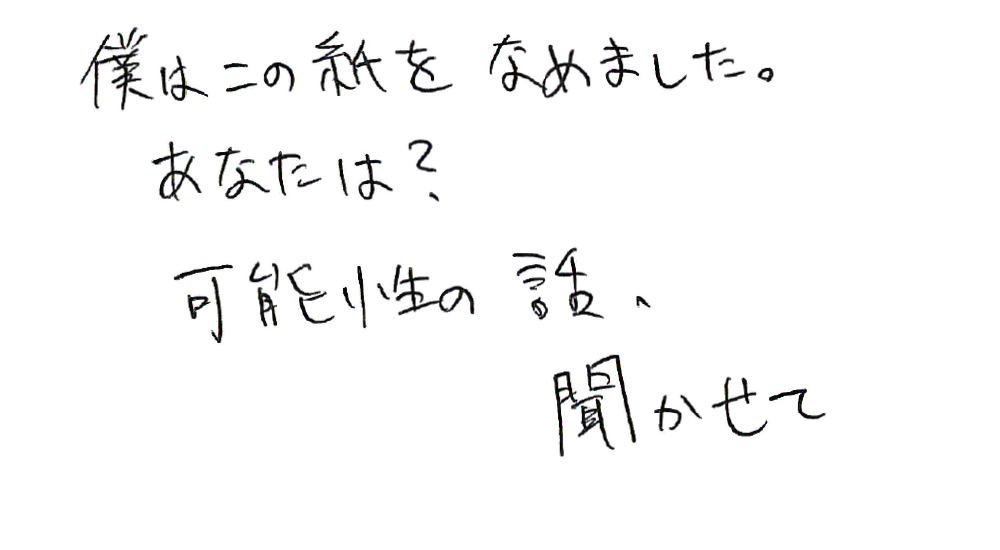 僕はこの紙をなめました。
あなたは？
可能性の話、
聞かせて